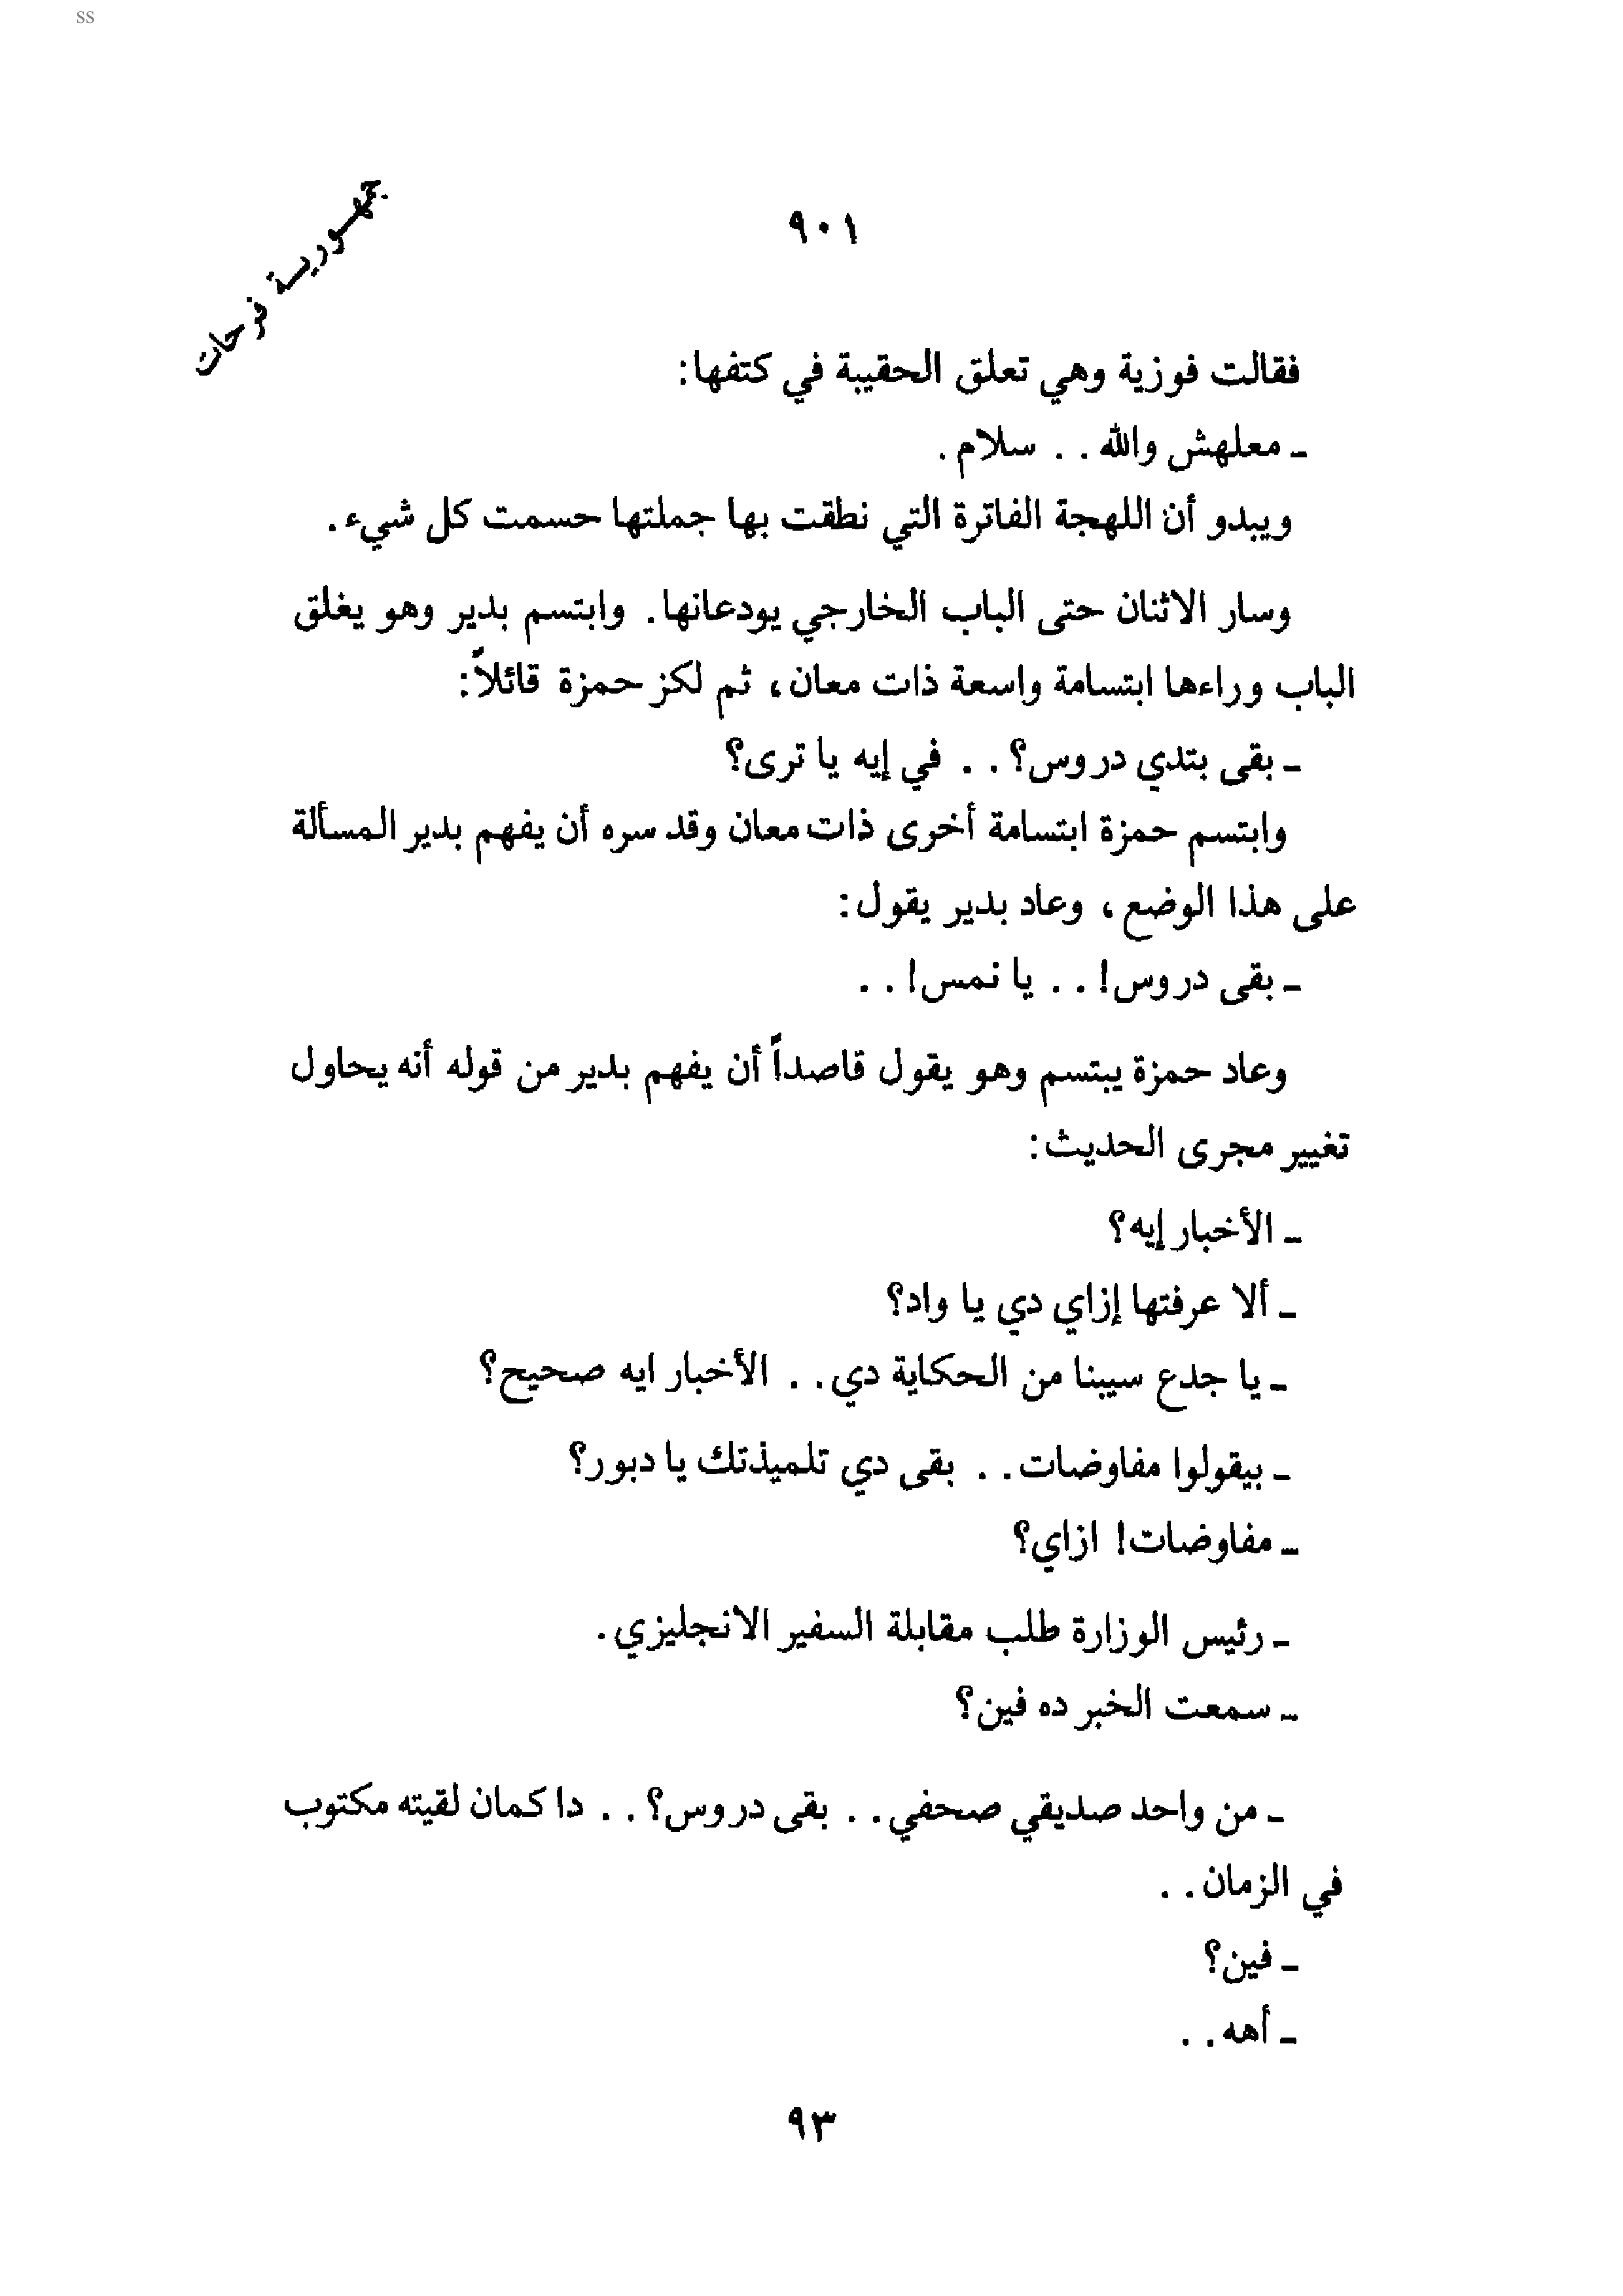 ss
جمهورية فرحات
٩٠١
فقالت فوزية وهي تعلق الحقيبة في كتفها:
ـ معلهش والله . . سلام .
ويبدو أن اللهجة الفاترة التي نطقت بها جملتها حسمت كل شيء.
وسار الاثنان حتى الباب الخارجي يودعانها. وابتسم بدير وهو يغلق
الباب وراءها ابتسامة واسعة ذات معان، ثم لكز حمزة قائلاً:
ـ بقى بتدي دروس؟ . . في إيه يا ترى؟
وابتسم حمزة ابتسامة أخرى ذات معان وقد سره أن يفهم بدير المسألة
على هذا الوضع، وعاد بدير يقول:
ـ بقى دروس! . . يا نمس! . .
وعاد حمزة يبتسم وهو يقول قاصداً أن يفهم بدير من قوله أنه يحاول
تغيير مجرى الحديث:
ـ الأخبار إيه؟
ـ ألا عرفتها إزاي دي يا واد؟
ـ يا جدع سيبنا من الحكاية دي . . الأخبار ايه صحيح؟
ـ بيقولوا مفاوضات . . بقى دي تلميذتك يا دبور؟
ـ مفاوضات! ازاي؟
ـ رئيس الوزارة طلب مقابلة السفير الانجليزي.
ـ سمعت الخبر ده فين؟
ـ من واحد صديقي صحفي . . بقى دروس؟ . . دا كمان لقيته مكتوب
في الزمان . .
ـ فين؟
ـ أهه . .
٩٣